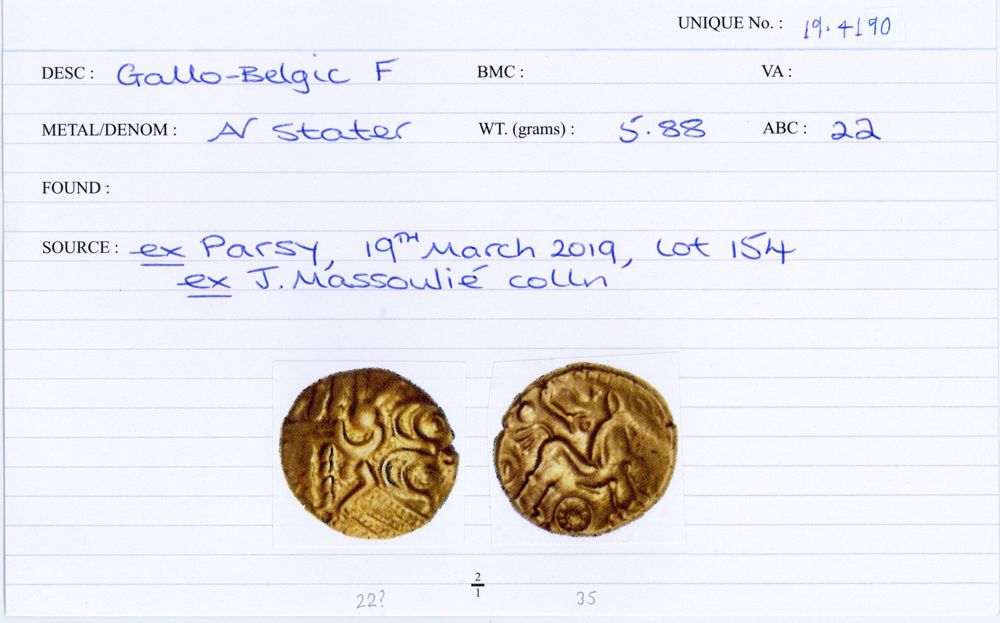 UNIQUE No. : 19.4190
DESC : Gallo-Belgic F BMC : VA :
METAL/DENOM : AV Stater WT. (grams) : 5.88 ABC : 22
FOUND :
SOURCE : ex Parsy, 19TH March 2019, Lot 154
ex J. Massoulié colln
2
1
22? 35